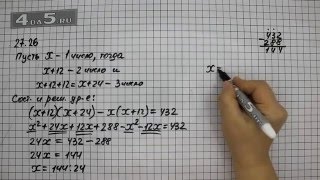 4DA5.RU
27.26
Пусть x - 1 число, тогда
x+12 - 2 число и
x+12+12 = x+24 - 3 число
Сост. и реш. ур-е:
(x+12)(x+24) - x(x+12) = 432
x² + 24x + 12x + 288 - x² - 12x = 432
24x = 432 - 288
24x = 144
x = 144:24
432
- 288
144
x =